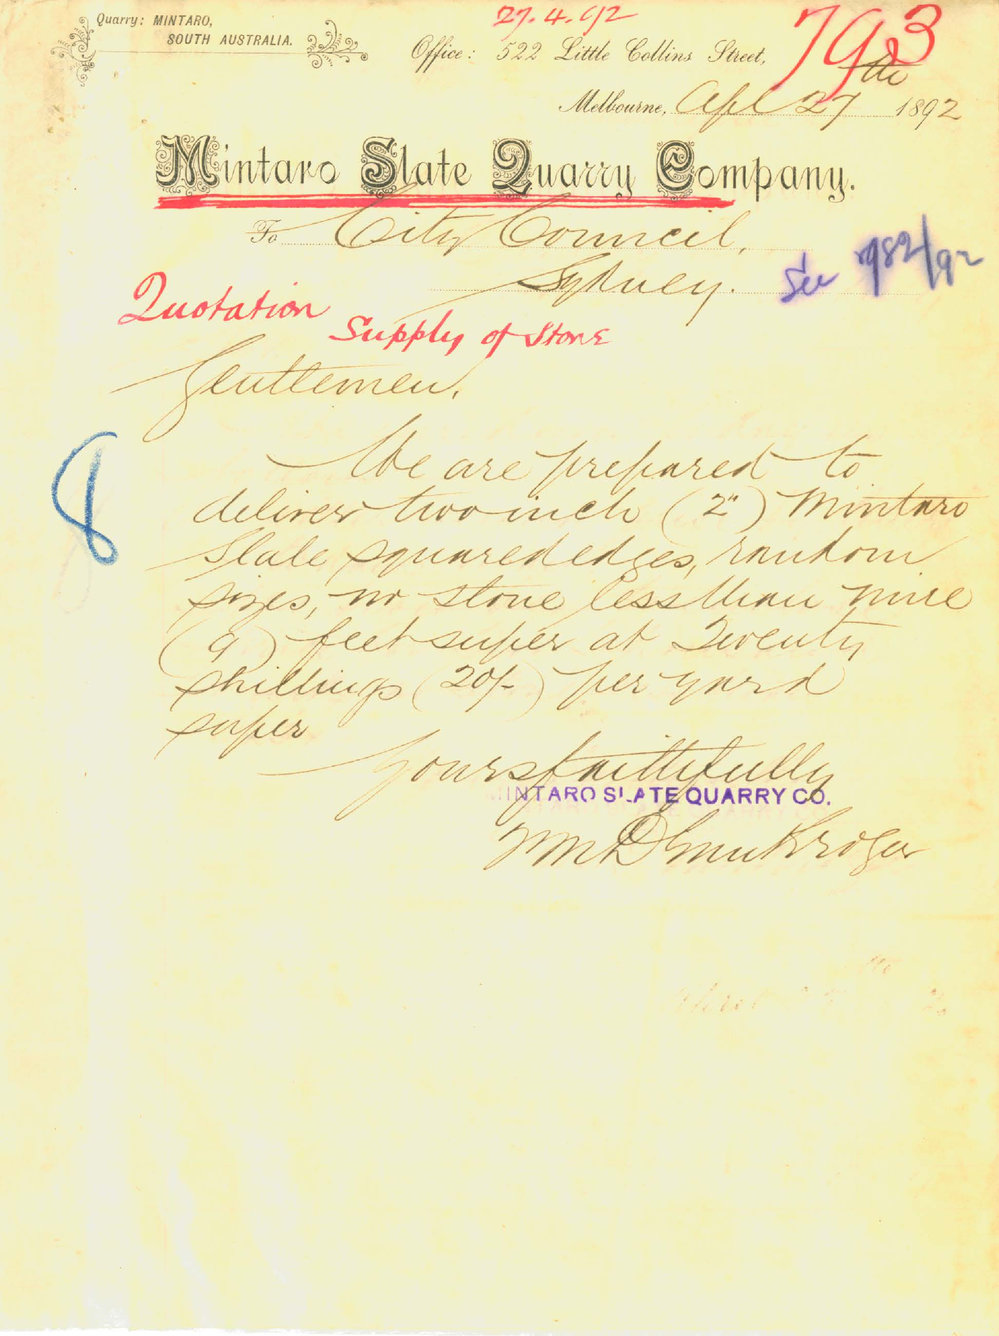 Quarry: MINTARO,
SOUTH AUSTRALIA.
27.4.92
793
Office: 522 Little Collins Street,
Melbourne, Apl 27th 1892
Mintaro Slate Quarry Company.
To City Council,
Sydney.
See 982/92
Quotation
Supply of Stone
Gentlemen,
8
We are prepared to
deliver two inch (2") Mintaro
Slate squared edges, random
sizes, no stone less than nine
(9) feet super at Twenty
shillings (20/-) per yard
super
Yours faithfully
MINTARO SLATE QUARRY CO.